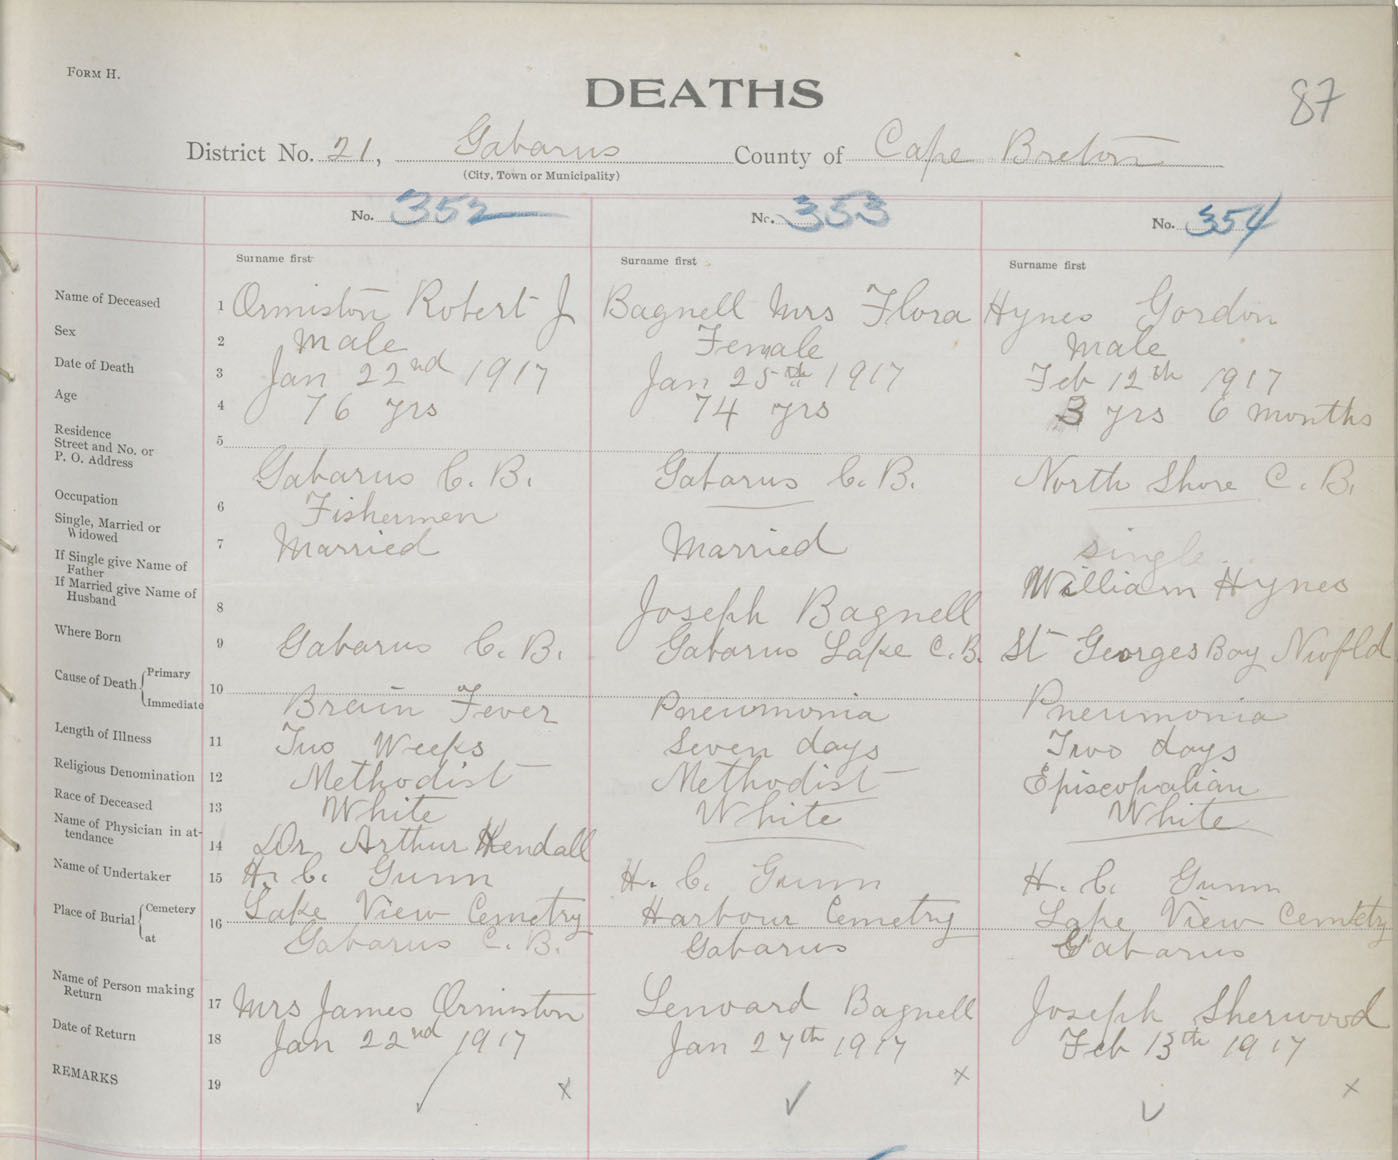 FORM H.
DEATHS
87
District No. 21, Gabarus County of Cape Breton
(City, Town or Municipality)
No. 352 No. 353 No. 354
Surname first Surname first Surname first
Name of Deceased 1 Ormiston Robert J Bagnell Mrs Flora Hynes Gordon
Sex 2 Male Female Male
Date of Death 3 Jan 22nd 1917 Jan 25th 1917 Feb 12th 1917
Age 4 76 yrs 74 yrs 3 yrs 6 months
Residence
Street and No. or
P. O. Address 5 Gabarus C. B. Gabarus C. B. North Shore C. B.
Occupation 6 Fishermen
Single, Married or
Widowed 7 Married Married single
If Single give Name of
Father William Hynes
If Married give Name of
Husband 8 Joseph Bagnell
Where Born 9 Gabarus C. B. Gabarus Lake C. B. St Georges Bay Nwfld
Cause of Death Primary
Immediate 10 Brain Fever Pneumonia Pneumonia
Length of Illness 11 Two Weeks Seven days Two days
Religious Denomination 12 Methodist Methodist Episcopalian
Race of Deceased 13 White White White
Name of Physician in at-
tendance 14 Dr Arthur Kendall
Name of Undertaker 15 H. C. Gunn H. C. Gunn H. C. Gunn
Place of Burial Cemetery 16 Lake View Cemetry Harbour Cemetry Lake View Cemetry
at Gabarus C. B. Gabarus Gabarus
Name of Person making
Return 17 Mrs James Ormiston Lenward Bagnell Joseph Sherwood
Date of Return 18 Jan 22nd 1917 Jan 27th 1917 Feb 13th 1917
REMARKS 19 ✓ x ✓ x ✓ x